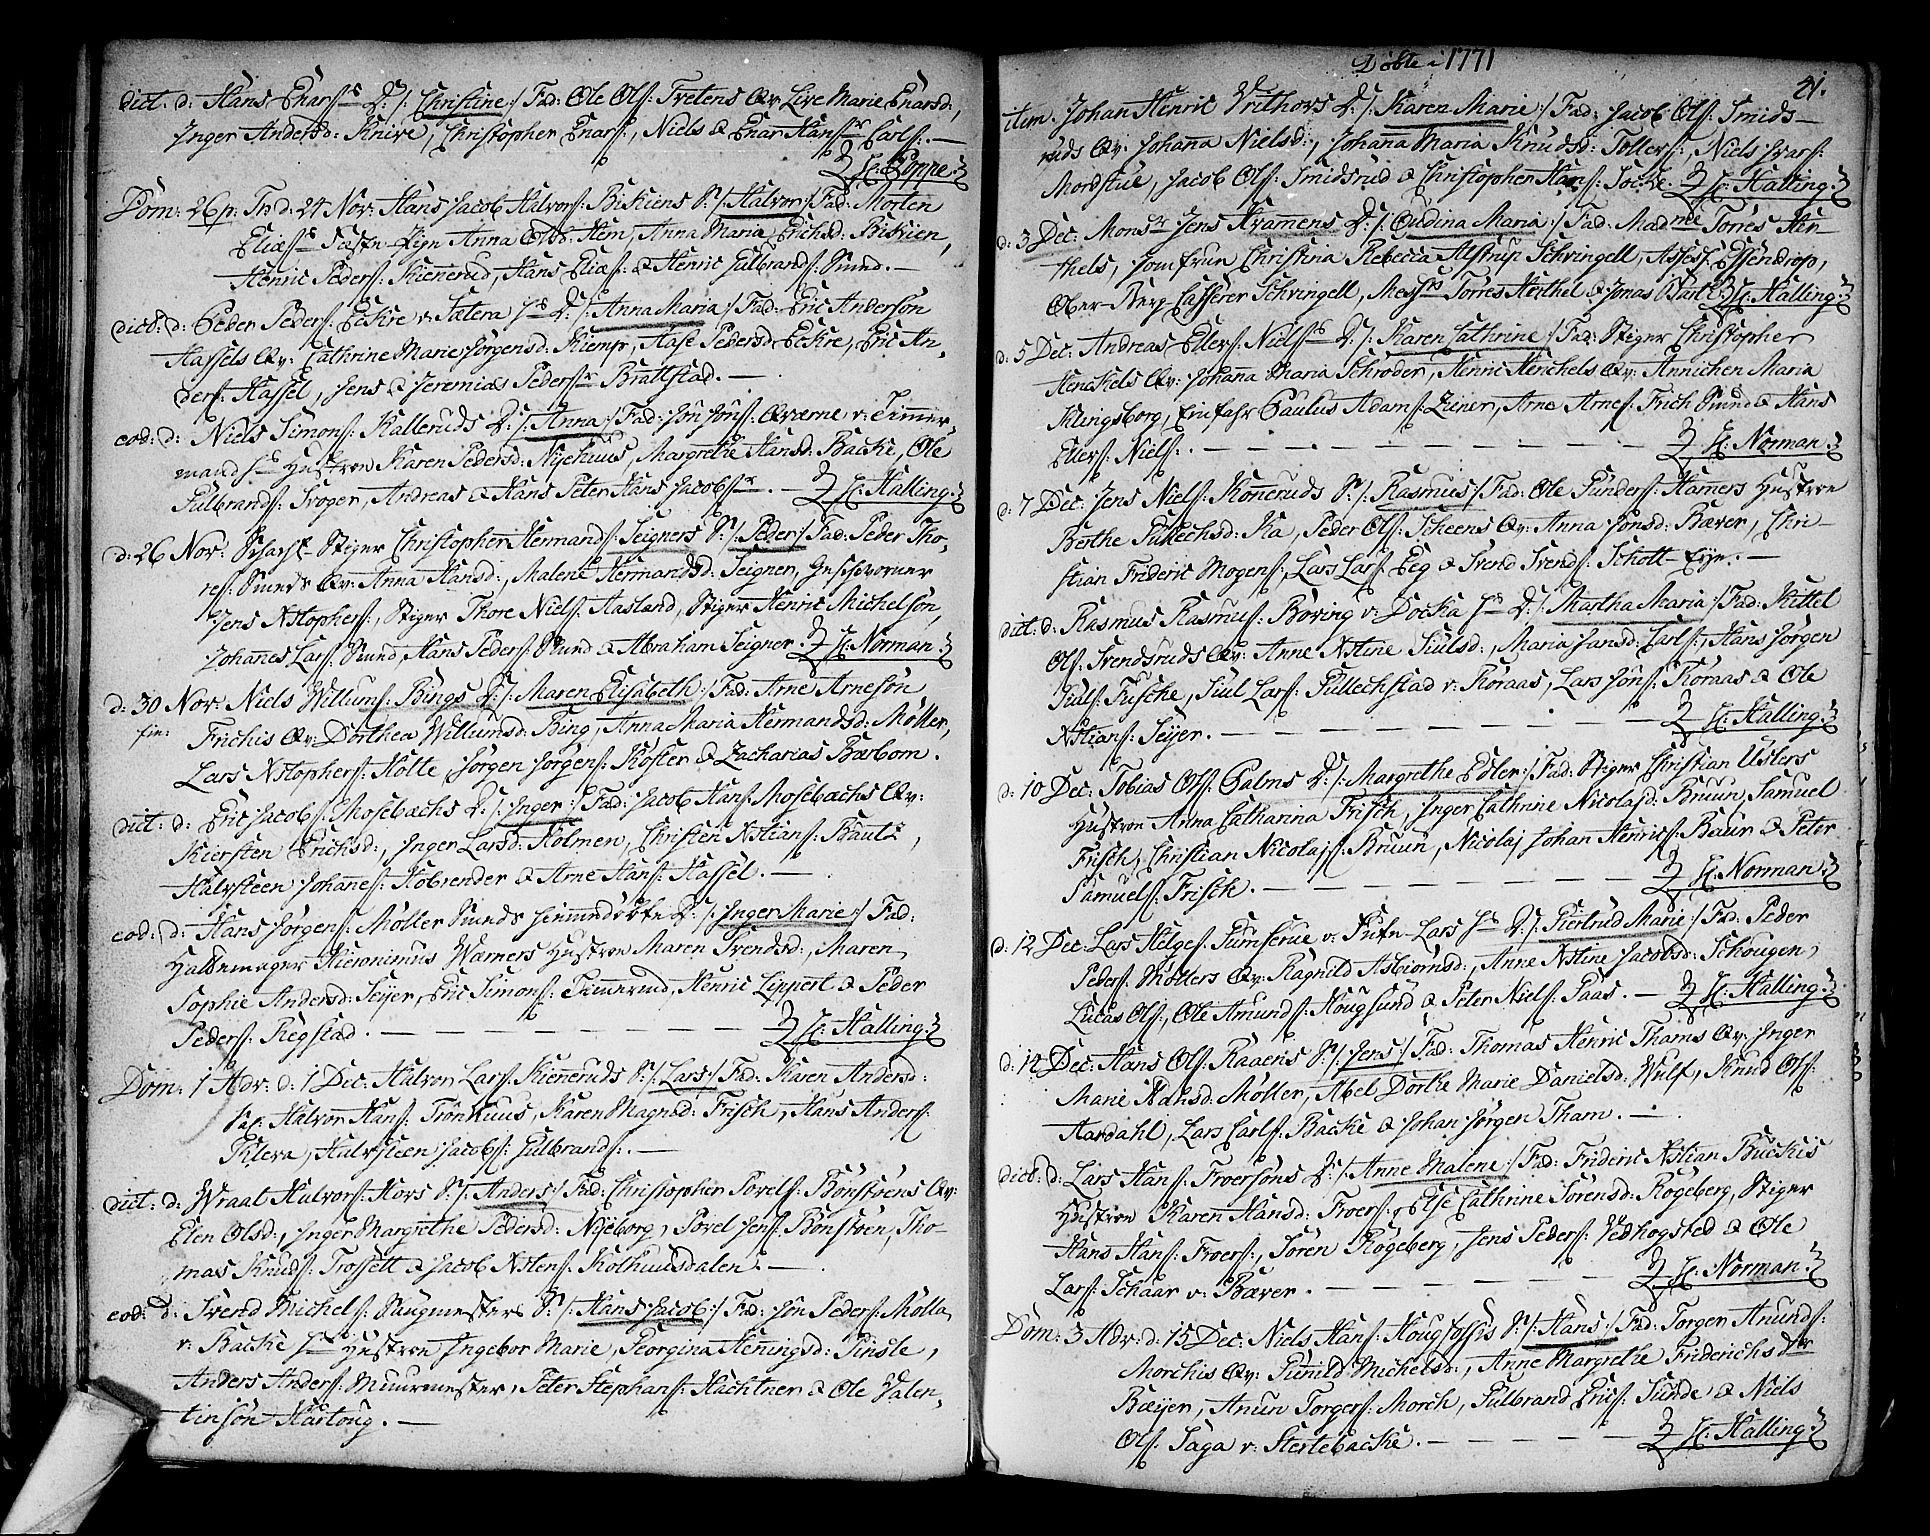 dict: d: Hans Enars:s D: /: Christine :/ Fad: Ole Ols: Tvetens Qv: Live Marie Enarsd:,
Inger Andersd: Knive, Christopher Enars:, Niels & Enar Hans:r Carls:. —
H: Poppe.
Dom: 26 p: Trd: 24 Nov: Hans Jacob Halvors: Bikiens S: /: Halvor :/ Fad: Morten
Eliæs:s Anna Olsd: Hem, Anna Maria Erichsd: Bikien,
Henric Peders: Kiennerud, Hans Eliæs: & Henric Gulbrands: Smed. —
dict: d: Peder Peders: Eckre v: Sætera hs D: /: Anna Maria :/ Fad: Eric Anderson
Hassels Qv: Cathrine Marie Jørgensd: Kiemp, Aase Pedersd: Eckre, Eric An-
ders: Hassel, Jens & Jeremias Peders:r Brattstad. —
eod: d: Niels Simons: Kalleruds D: /: Anna :/ Fad: Jon Jons: Qværne v: Timmer-
mand hs Hustroe Karen Pedersd: Nyehuus, Margrethe Hansd: Backe, Ole
Gulbrands: Kroger, Andreas & Hans Peter Hans: Jacobs:r. — H: Halling.
d: 26 Nov: Schacht Stiger Christopher Hermands: Seigners S: /: Peder :/ Fad: Peder Tho-
res: Smeds Qv: Anna Hansd:, Malene Hermandsd: Seigner, Geschworner
Jens Xstophers:, Stiger Thore Niels: Aasland, Stiger Henric Michelsøn,
Johannes Lars: Smed, Hans Peders: Smed & Abraham Seigner. H: Norman.
d: 30 Nov: Niels Willums: Bings D: /: Maren Elisabeth :/ Fad: Arne Arnesøn
Frichis Qv: Dorthea Willumsd: Bing, Anna Maria Hermandsd: Møller,
Lars Xstophers: Holte, Jørgen Jørgens: Koster & Zacharias Bærbom.
dict: d: Eric Jacobs: Mosebachs D: /: Inger :/ Fad: Jacob Hans: Mosebachs Qv:
Kiersten Erichsd:, Inger Larsd: Holmen, Christen Xstians: Bautz,
Halvsteen Johannes: Kobrender & Arne Hans: Hassel. —
eod: d: Hans Jørgens: Møller Smeds hiemmedøbte D: /: Inger Marie :/ Fad:
Hattemager Hieronimus Wærners Hustroe Maren Svendsd:, Maren
Sophie Andersd: Seyer, Eric Simons: Timermd, Henric Lippert & Peder
Peders: Regstad. — H: Halling.
Dom: 1 Adv: d: 1 Dec: Halvor Lars: Kienneruds S: /: Lars :/ Fad: Karen Andersd:
Sac. Halvor Hans: Trønhuus, Karen Magnsd: Frisch, Hans Anders:
Kleva, Halvsteen Jacobs: Gulbrands:. —
dict: d: Wraal Halvors: Hors S: /: Anders :/ Fad: Christopher Povels: Bønstvens Qv:
Elen Olsd:, Inger Margrethe Pedersd: Nyeborg, Povel Jens: Bønstven, Tho-
mas Knuds: Trossett & Jacob Xstens: Kolhuusdalen. —
eod: d: Svend Michels: Saugmesters S: /: Hans Jacob :/ Fad: Jon Peders: Mølla
v: Backe hs Hustroe Ingebor Marie, Georgina Heningsd: Ginsle,
Anders Anders: Muurmester, Peter Stephans: Hachtner & Ole Valen-
tinsøn Hartoug. —
Døbte i 1771
21.
item: Johan Henric Writhors D: /: Karen Marie :/ Fad: Jacob Ols: Smids-
ruds Qv: Johana Nielsd:, Johana Maria Knudsd: Tollers:, Niels Ivars:
Mordstue, Jacob Ols: Smidsrud & Christopher Hans: Tocke. H: Halling.
d: 3 Dec: Monsr Jens Kramens D: /: Gudina Maria :/ Fad: Madme Torres Her-
thels, Jomfrue Christina Rebecca Alstrup Schvingell, Assess: Essendrop,
Ober-Berg Casserer Schvingell, Messrs Torres Herthel & Jonas Bartt. H: Halling.
d: 5 Dec: Andreas Ellers: Niels:s D: /: Karen Cathrine :/ Fad: Stiger Christopher
Henckels Qv: Johana Maria Schrøder, Henric Henchels Qv: Annichen Maria
Klingsborg, Einfahr Paulus Adams: Ziener, Arne Arnes: Frich Smed & Hans
Ellers: Niels:. — H: Norman.
d: 7 Dec: Jens Niels: Konneruds S: /: Rasmus :/ Fad: Ole Gunders: Hamers Hustroe
Berthe Gullechsd: Ka, Peder Ols: Scheens Qv: Anna Jonsd: Bæver, Chri-
stian Frideric Mogens:, Lars Lars: Eeg & Svend Svends: Schott-Eye. —
dict: d: Rasmus Rasmus: Børing v: Docka hs D: /: Martha Maria :/ Fad: Kittel
Ols: Svendsruds Qv: Anne Xstine Juulsd:, Maria Hansd: Carls:, Hans Jørgen
Juls: Fusche, Juul Lars: Gullechstad v: Roraas, Lars Jons: Roraas & Ole
Xstians: Seyer. — H: Halling.
d: 10 Dec: Tobias Ols: Palms D: /: Margrethe Edler :/ Fad: Stiger Christian Uslers
Hustroe Anna Catharina Frisch, Inger Cathrine Nicolajsd: Bruun, Samuel
Frisch, Christian Nicolajs: Bruun, Nicolaj Johan Henrics: Baur & Peter
Samuels: Frisch. — H: Norman.
d: 12 Dec: Lars Helges: Gunserue v: Lars hs D: /: Giertrud Marie :/ Fad: Peder
Peders: Møllers Qv: Ragnild Asbiørnsd:, Anne Xstine Jacobsd: Schougen,
Lucas Ols:, Ole Amunds: Hougsund & Peter Niels: Paas. — H: Halling.
d: 12 Dec: Hans Ols: Raaens S: /: Jens :/ Fad: Thomas Henric Thams Qv: Inger
Marie Hansd: Møller, Abel Dorthe Marie Danielsd: Wulf, Knud Ols:
Aardahl, Lars Carls: Backe & Johan Jørgen Tham. —
dict: d: Lars Hans: Froersøns D: /: Anne Malene :/ Fad: Frideric Xstian Buckis
Hustroe Karen Hansd: Froers:, Else Cathrine Sørensd: Rogeberg, Stiger
Hans Hans: Froers:, Søren Rogeberg, Jens Peders: Vedhogsted & Ole
Lars: Schaar v: Bæver. — H: Norman.
Dom: 3 Adv: d: 15 Dec: Niels Hans: Hougfossis S: /: Hans :/ Fad: Torger Anunds:
Morchis Qv: Gunild Michelsd:, Anne Margrethe Friderichsdtr
Bæyer, Anun Torgers: Morch, Gulbrand Erics: Sunde & Niels
Ols: Saga v: Stertebacke. — H: Halling.